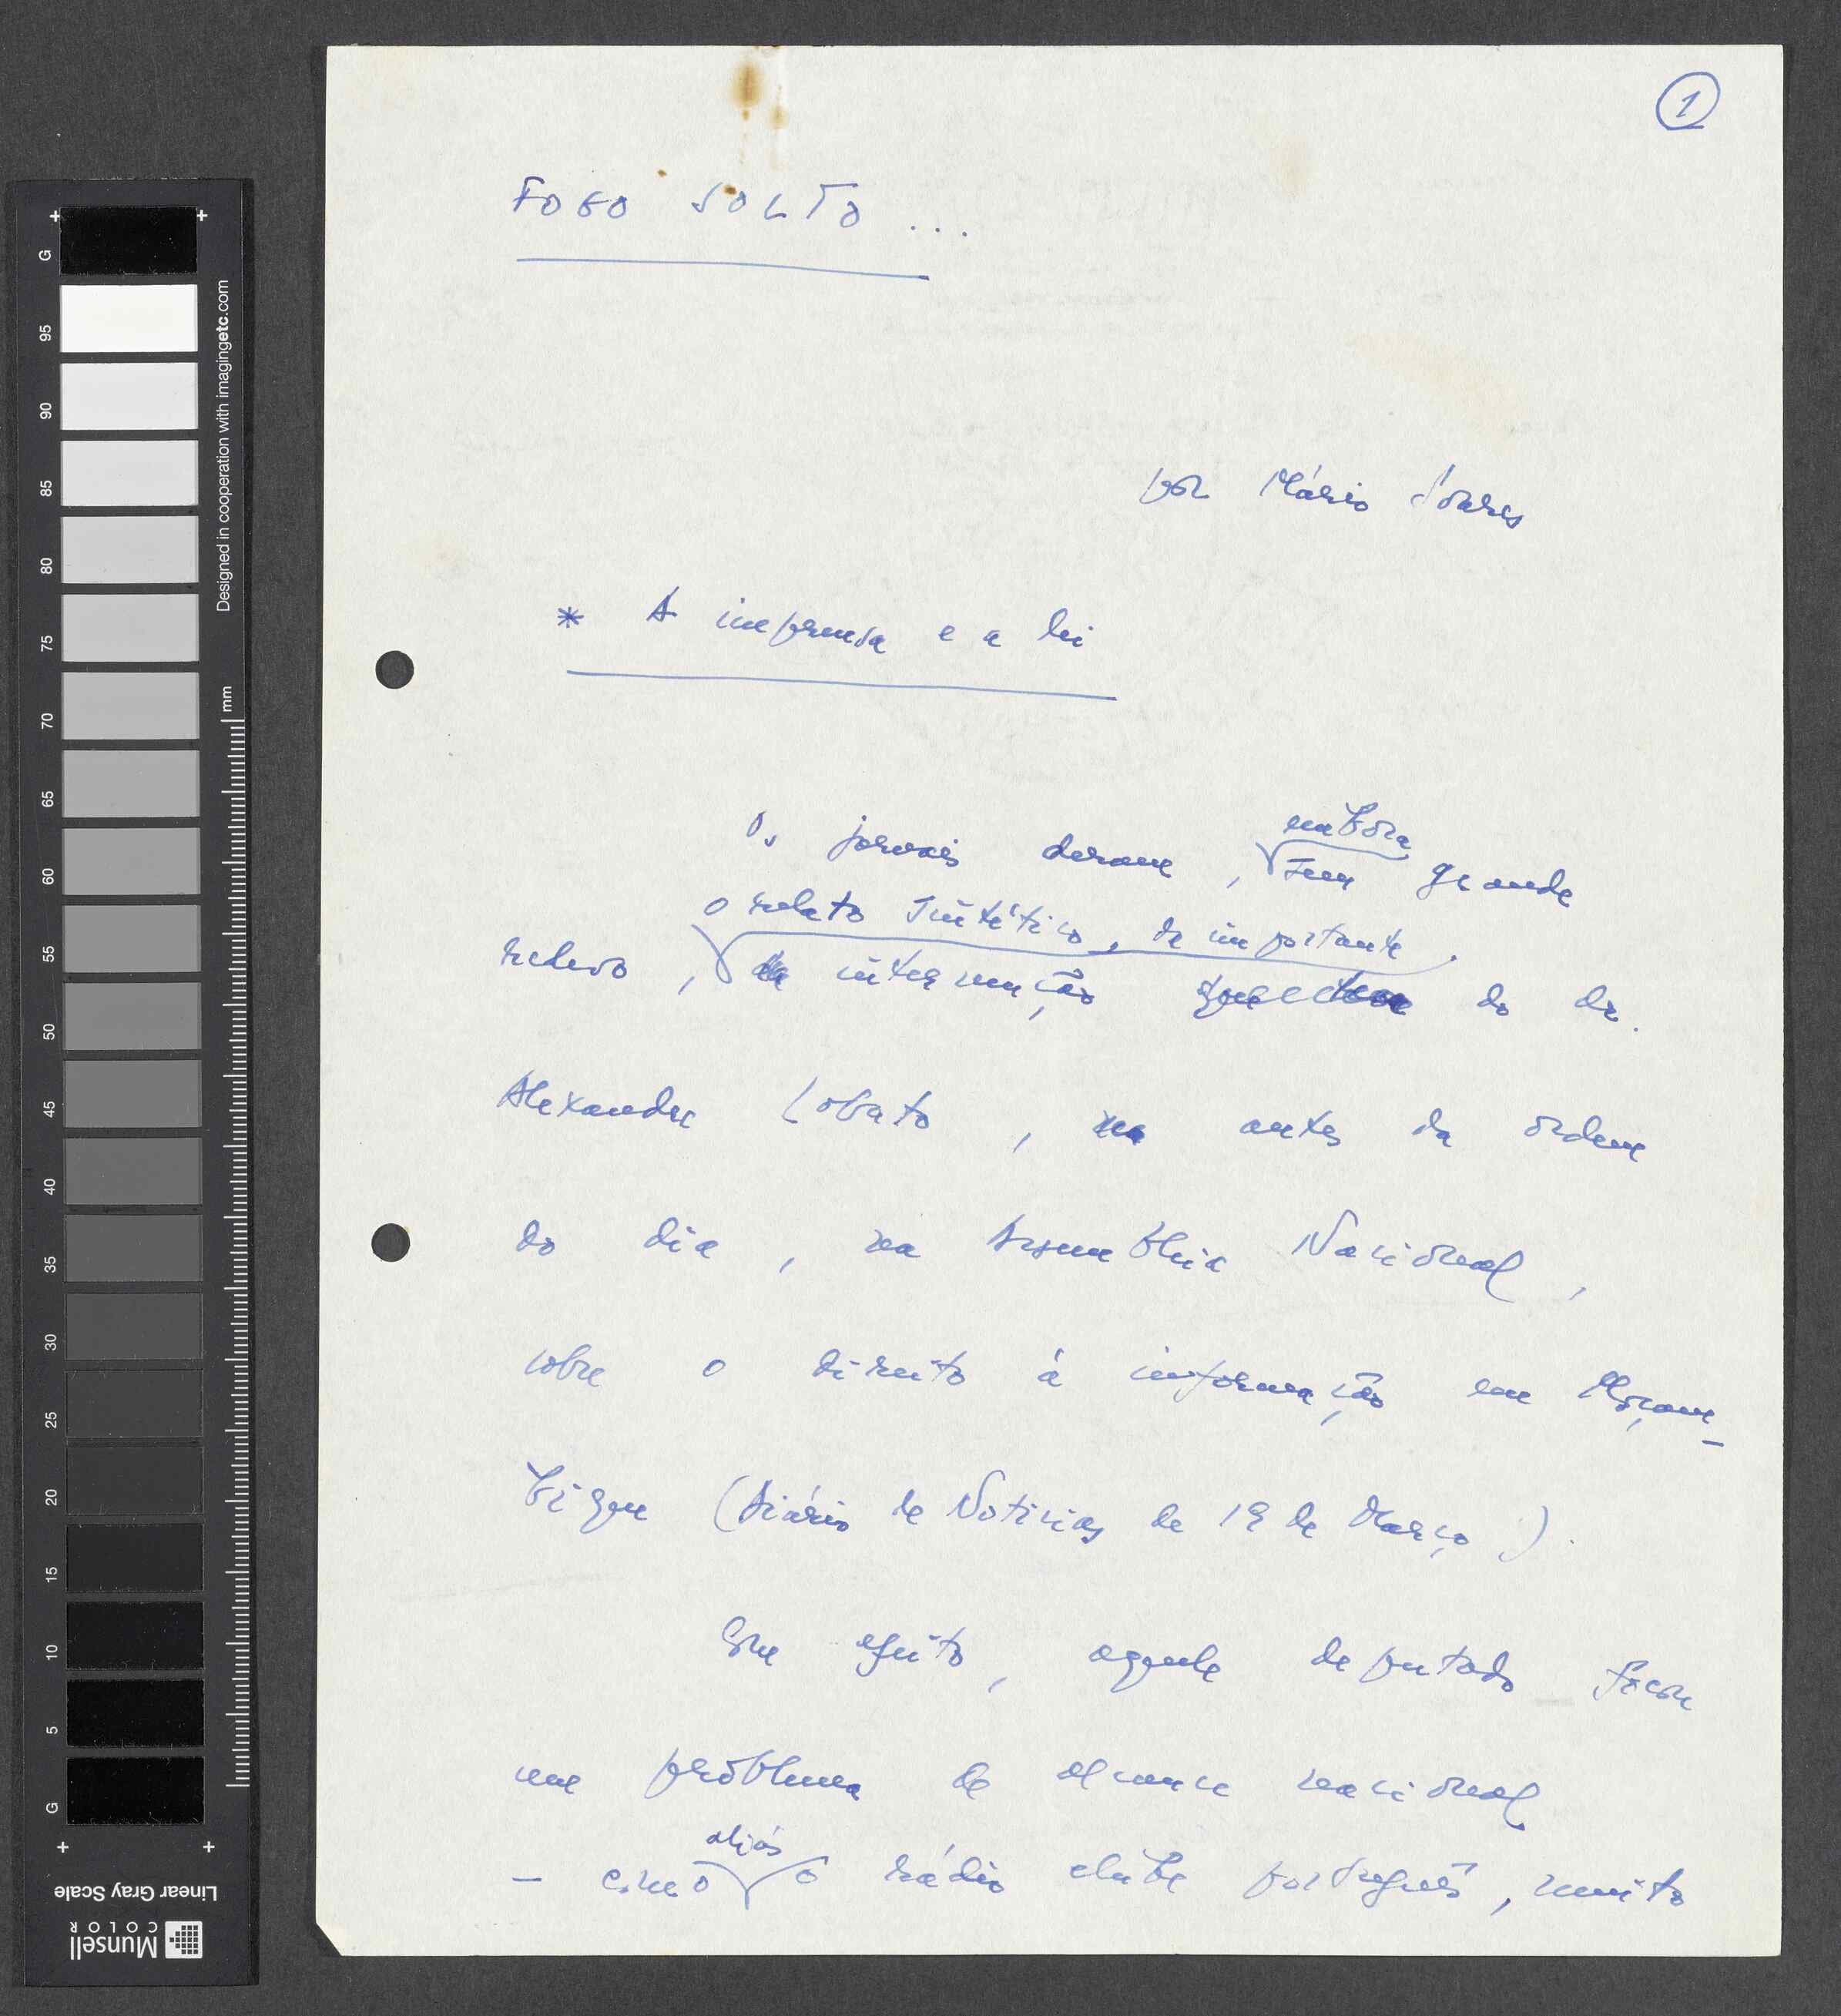 1
FOGO SOLTO ...
por Mário Soares
* A imprensa e a lei
embora
Os jornais deram, sem grande
o relato sintético, da importante
relevo, intervenção do dr.
Alexandre Lobato, no antes da ordem
do dia, na Assembleia Nacional,
sobre o direito à informação em Moçam-
bique (Diário de Notícias de 19 de Março).
Com efeito, aquele deputado focou
um problema de alcance nacional
aliás
- como o rádio clube português, muito
G
95
90
85
80
75
70
65
60
55
50
45
40
35
30
25
20
15
10
5
G
Designed in cooperation with imagingetc.com
mm
Linear Gray Scale
Munsell
COLOR